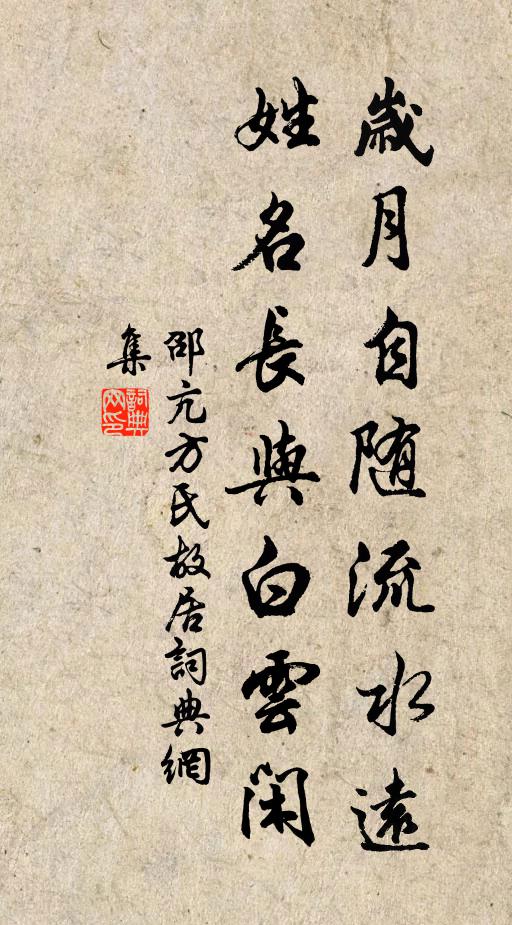 歲月自随流水遠
姓名長與白雲閑
邵亢方氏故居詞典網
集
詞典網印